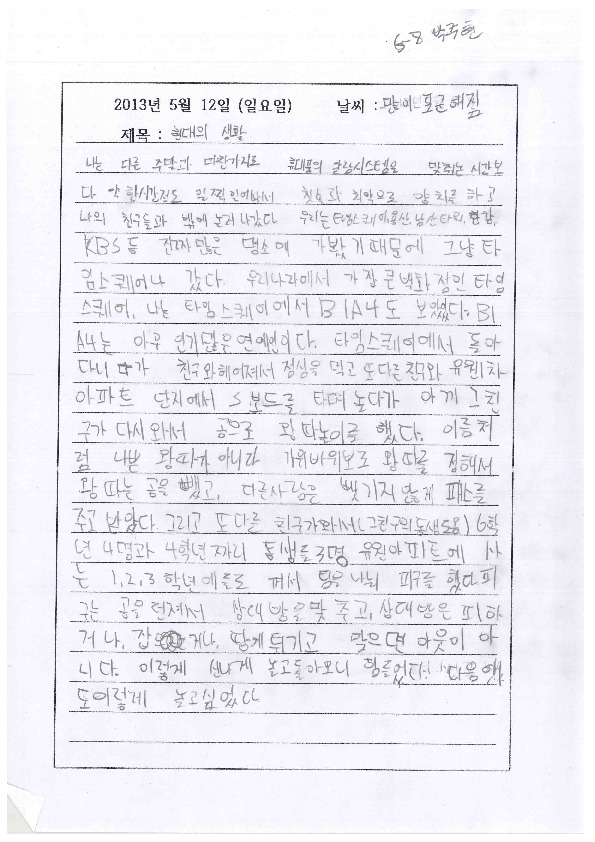 6-8 박주현
2013년 5월 12일 (일요일) 날씨 : 많이 포근해짐
제목 : 현대의 생활
나는 다른 주말과 마찬가지로 휴대폰의 알람시스템을 맞춰논 시간보
다 약 한시간정도 일찍 일어나서 칫솔과 치약으로 양치를 하고
나의 친구들과 밖에 놀러 나갔다 우리는 타임스퀘어 용산 남산타워, 한강,
KBS등 갖가지 많은 명소에 가봤기 때문에 그냥 타
임스퀘어나 갔다. 우리나라에서 가장 큰 백화점인 타임
스퀘어, 나는 타임스퀘어에서 B1A4도 보았었다. B1
A4는 아주 인기많은 연예인이다. 타임스퀘어에서 돌아
다니다가 친구와 헤어져서 점심을 먹고 또 다른 친구와 유원1차
아파트 단지에서 S보드를 타며 놀다가 아까 그 친
구가 다시 와서 공으로 왕따놀이를 했다. 이름처
럼 나쁜 왕따가 아니라 가위바위보로 왕따를 정해서
왕따는 공을 뺐고, 다른사람은 뺏기지 않게 패스를
주고 받았다. 그리고 또 다른 친구가 와서 (그친구의 동생도용) 6학
년 4명과 4학년짜리 동생들 3명 유원아파트에 사
는 1,2,3 학년애들도 껴서 팀을 나눠 피구를 했다 피
구는 공을 던져서 상대방을 맞추고, 상대방은 피하
거나, 잡거나, 땅에 튀기고 맞으면 아웃이 아
니다. 이렇게 신나게 놀고 돌아오니 힘들었다. 다음에
도 이렇게 놀고싶었다